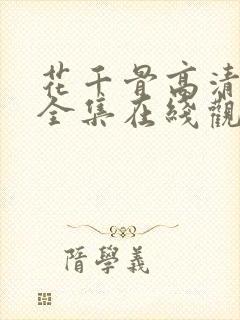 花千骨高清
全集在綫觀
隋學義